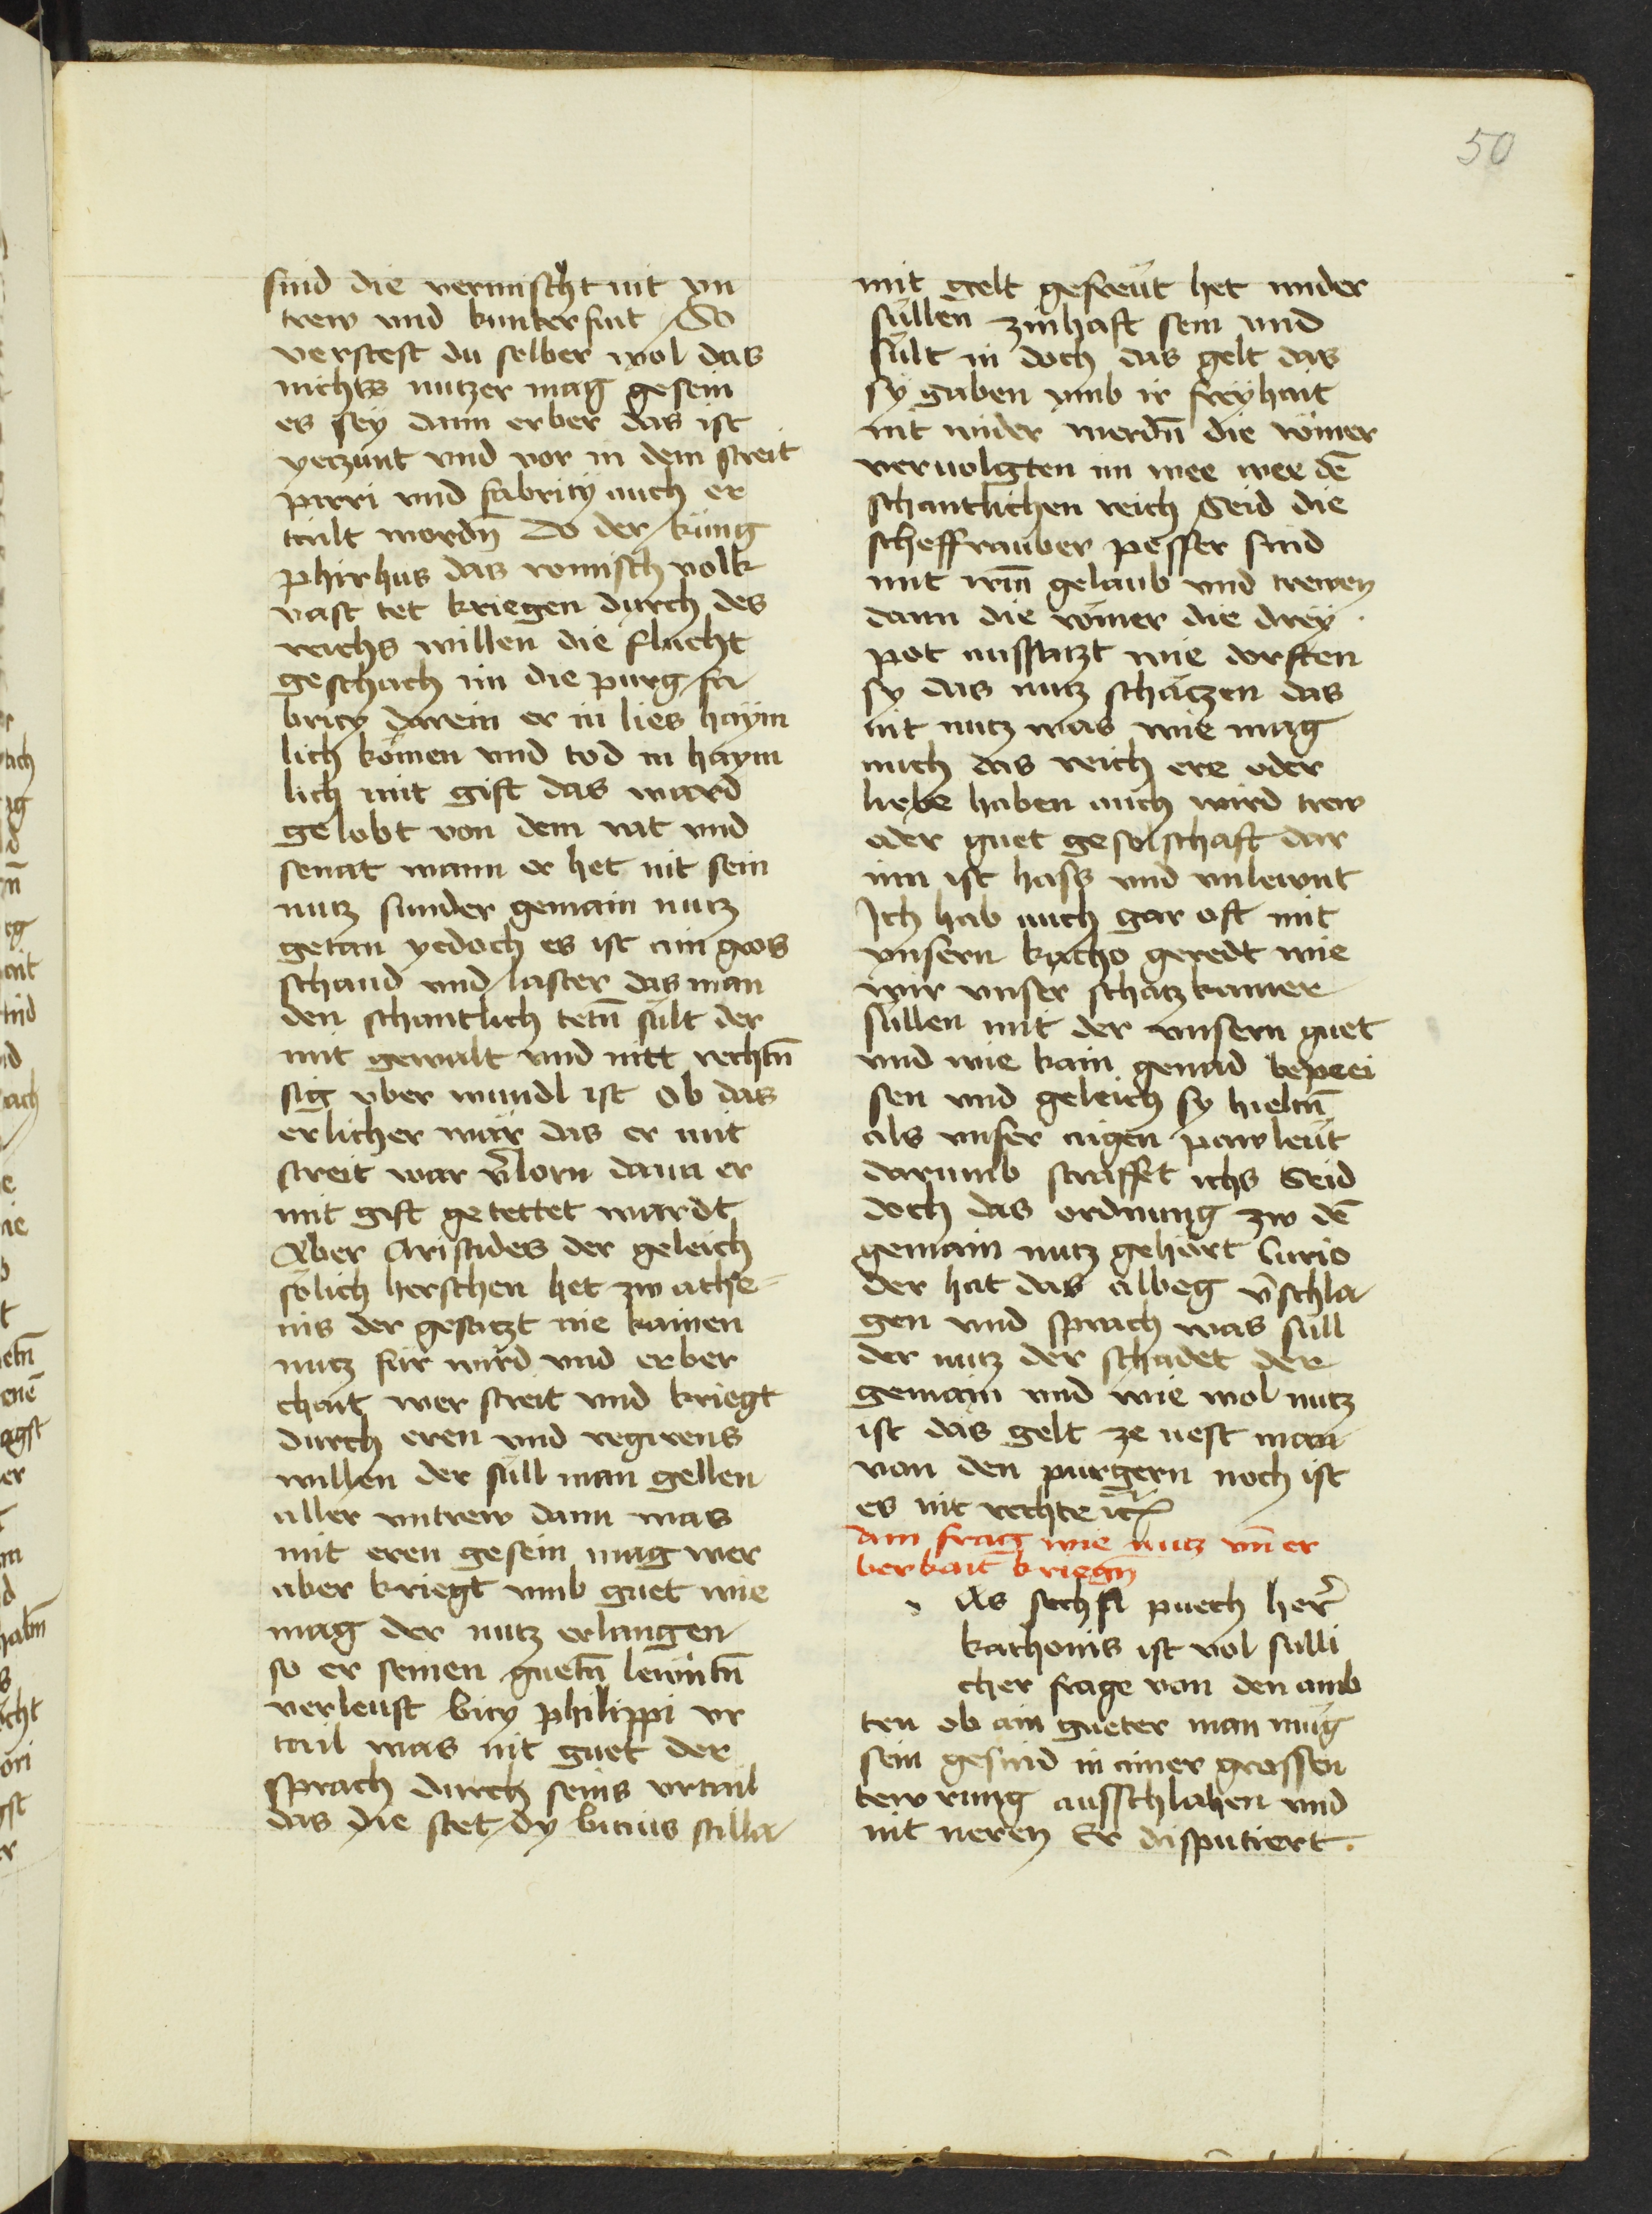 50
sind die vermischt nit vn
trew vnd kunterfait So
verstest du selber wol das
nichts nutzer mag gesein
es sey dann erber das ist
yetzunt vnd vor in dem streit
pirri vnd fabricy auch er
tailt wordn̄ Do der küng
phirhus das romisch volk
vast tet kriegen durch des
reichs willen die flucht
geschach im die purg fa
bricy darein er in lies haÿm
lich kömen vnd tod in haym
lich mit gift das ward
gelobt von dem rat vnd
senat wann er het nit sein
nutz sunder gemain nutz
getan yedoch es ist ain gros
schand vnd laster das man
den schantlich tetn̄ sült der
mit gewalt vnd nitt rechtn̄
sig vber wundl ist Ob das
erlicher wär das er mit
streit war v̄lorn dann er
mit gift getettet wardt
Aber Aristides der geleich
sölich herschen het zw athe=
nis der gesatzt nie kainen
nutz für wird vnd erber
chait wer streit vnd kriegt
durch eren vnd regirens
willen der süll man gellen
aller vntrew dann was
mit eren gesein mag wer
aber kriegt vmb guet wie
mag der nutz erlangen
so er seinen guetn̄ lewntn̄
verleust bicy philippi vr
tail was nit guet der
sprach durch seins vrtail
das die stet dy lucius silla
mit gelt gefreüt het wider
süllen zinhaft sein vnd
sült in doch das gelt das
sÿ gaben vmb ir freÿhait
nit wider werdn̄ die römer
veruolgten im wee wee dē
schantlichen reich Seid die
scheffrauber pesser sind
mit irm̄ gelaub vnd trewen
dann die römer die dreÿ
pot aussatzt wie dorften
sy das nutz schätzen das
nit nutz was wie mag
auch das reich ere oder
liebe haben auch wird trew
oder guet geselschaft dar
inn ist hass vnd vnlewnt
Ich hab auch gar oft mit
vnsern katho geredt wie
wir vnser schatzkamer
süllen mit der vnsern guet
vnd wie kain genad bepeei
sen vnd geleich sy hieltn̄
als vnser aigen pawleüt
darumb straffet ichs Seid
doch das ordnung zw dē
gemain nutz gehört Curio
der hat das albeg v̄schla
gen vnd sprach was süll
der nutz der schadet der
gemain vnd wie wol nutz
ist das gelt ze uest man
von den purgern noch ist
es nit rechte ꝛc
Ain frag wie nutz vn̄ er
berkait kriegn̄
As sechst puech her̄
kathonis ist vol sülli
cher frage von den amb
ten ob ain gueter man mug
sein gesind in ainer grossen
tewrung ausschlahen vnd
nit neren Er disputiert